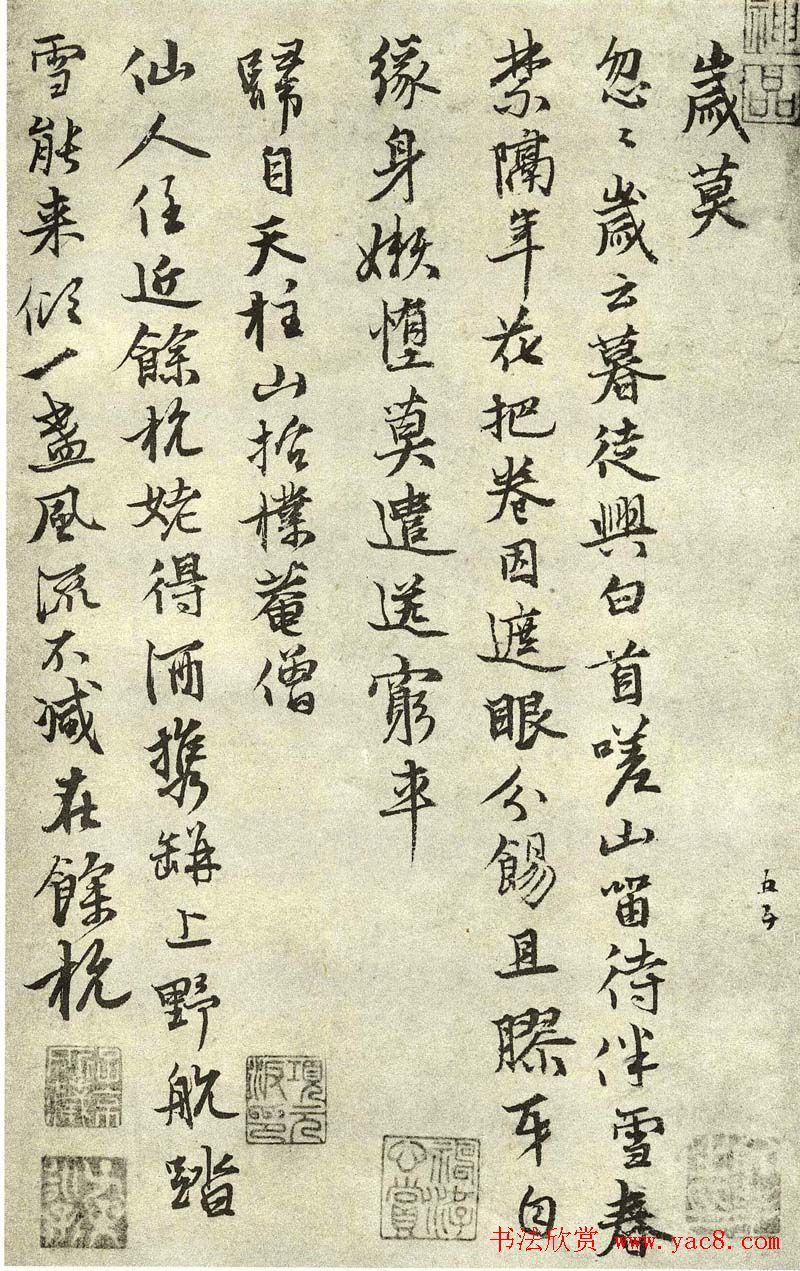 歲莫
忽〻歲云暮徒興白首嗟山留待伴雪春
禁隔年花把卷因遮眼分餳且膠牙自
緣身嬾惰莫遣送窮車
歸自天柱山拾樸菴僧
仙人住近餘杭姥得酒携缾上野航踏
雪能来傾一盞風流不減在餘杭
神品
五子
項元汴印
公賞
书法欣赏 www.yac8.com